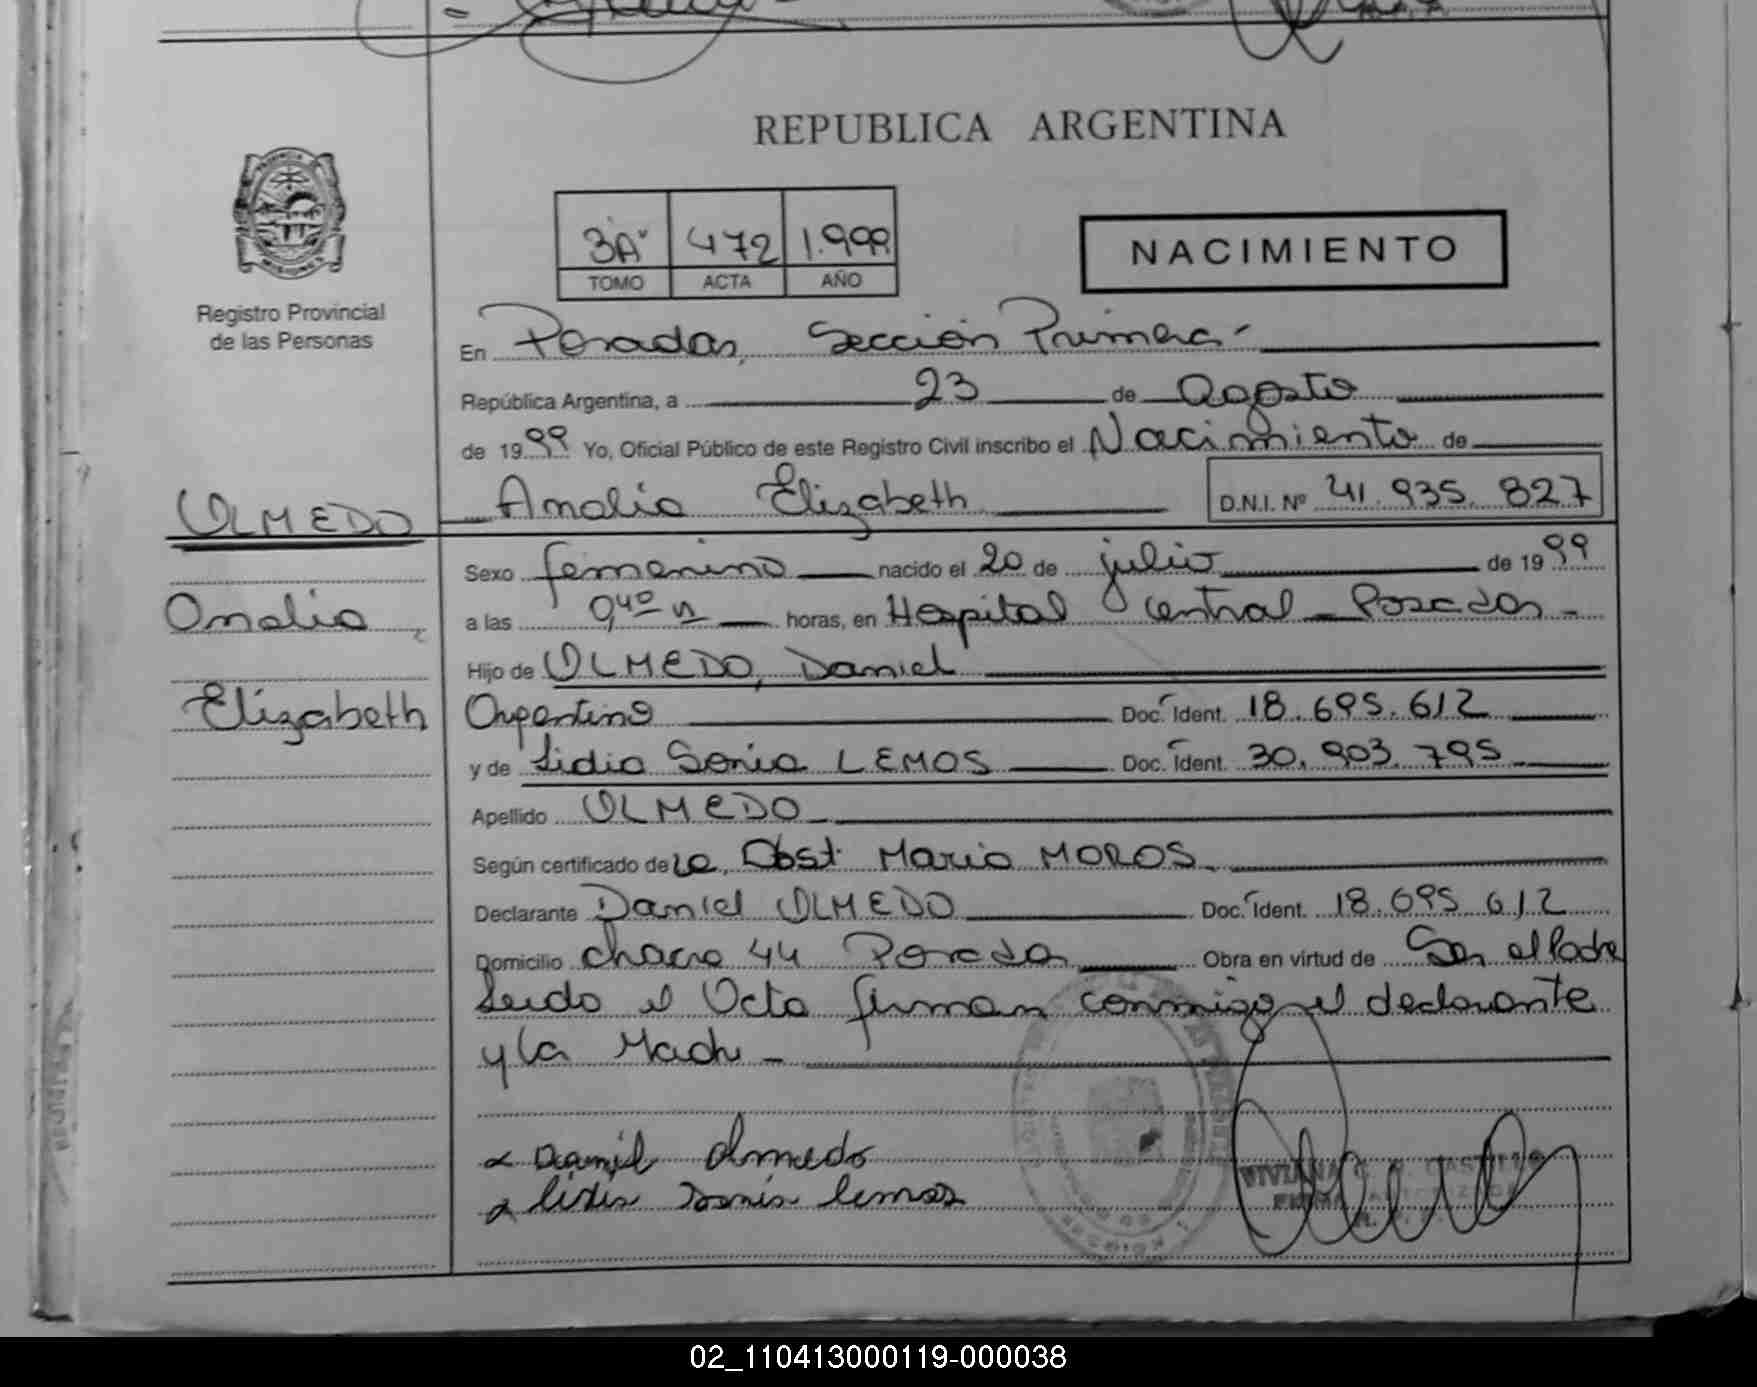 REPUBLICA ARGENTINA
PROVINCIA
MISIONES
Registro Provincial
de las Personas
3A" 472 1.999
TOMO ACTA AÑO
NACIMIENTO
En Posadas, Sección Primera-
República Argentina, a 23 de Agosto
de 1999 Yo, Oficial Público de este Registro Civil inscribo el Nacimiento de
OLMEDO
Amalia Elizabeth D.N.I. Nº 41.935.827
Sexo femenino nacido el 20 de julio de 1999
Amalia
a las 9 40 horas, en Hospital Central - Posadas -
Hijo de OLMEDO, Daniel
Elizabeth
Argentino Doc. Ident. 18.695.612
y de Lidia Sonia LEMOS Doc. Ident. 30.903.795
Apellido OLMEDO
Según certificado de la Obst. Maria MOROS
Declarante Daniel OLMEDO Doc. Ident. 18.695.612
Domicilio chacra 44 Posadas Obra en virtud de Ser el Padre
Leido el Acta firman conmigo el declarante
y la Madre -
Daniel Olmedo
VIVIANA CASTILLO
lidia Sonia lemos
FIRMA AUTORIZADA
02_110413000119-000038